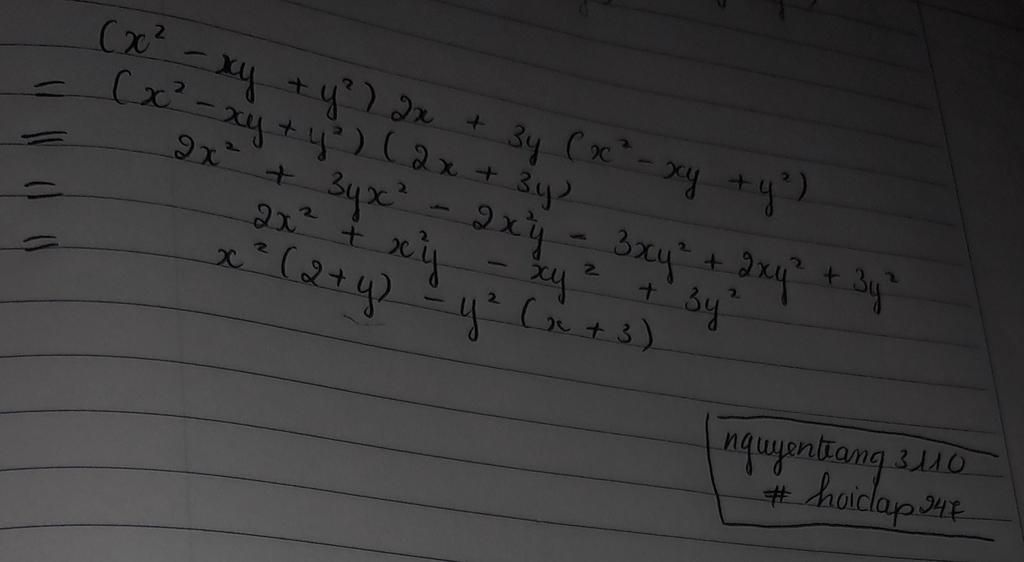 (x² - xy + y²) 2x + 3y (x² - xy + y²)
= (x² - xy + y²) (2x + 3y)
= 2x² + 3yx² - 2x²y - 3xy² + 2xy² + 3y²
= 2x² + x²y - xy² + 3y²
= x² (2+y) - y² (x + 3)
nguyentrang 3110
# hoidap 247